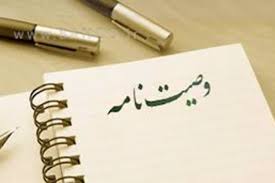 وصیت نامه